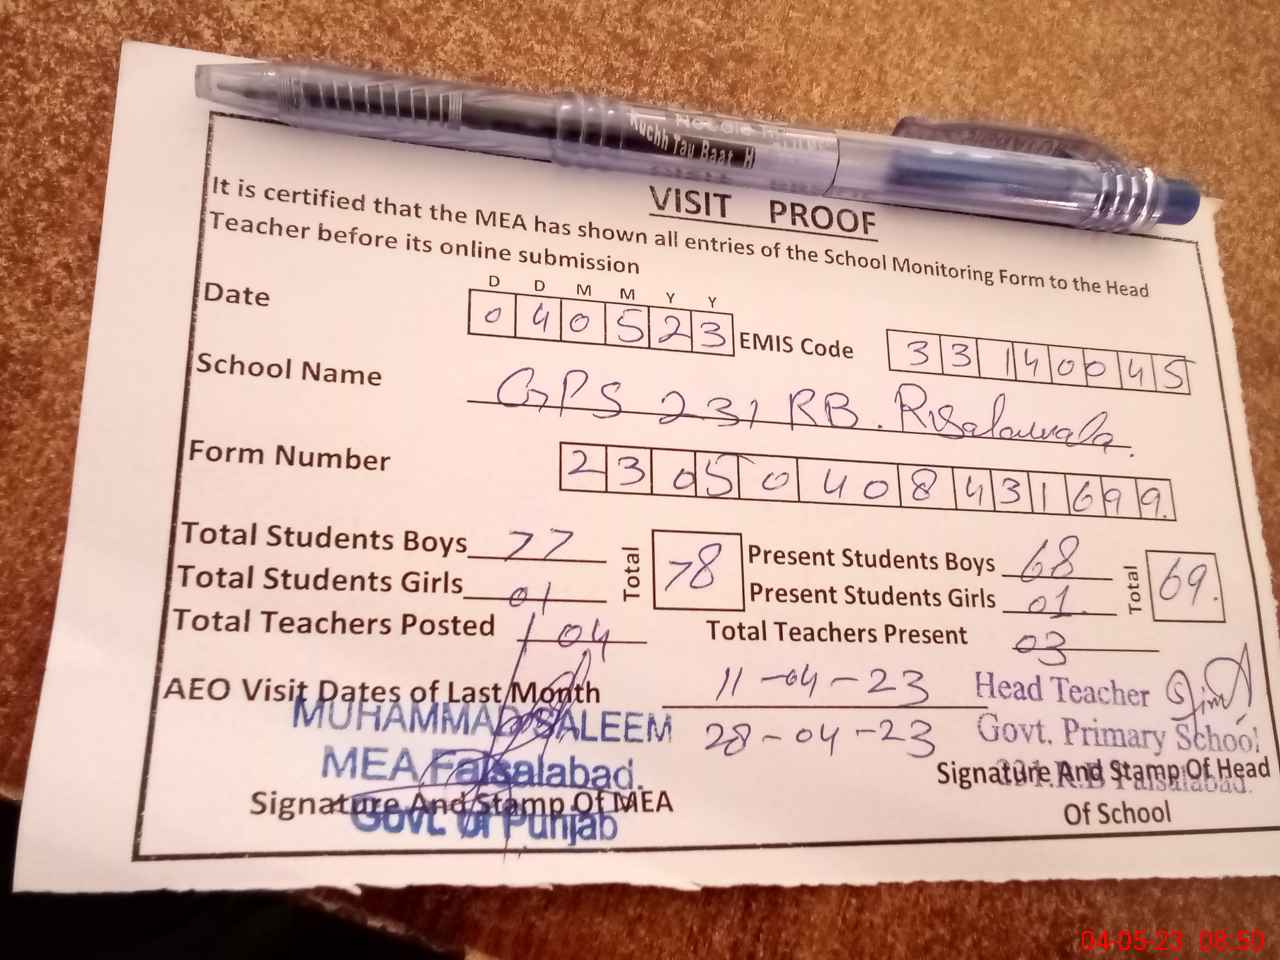 Kuchh Tau Baat H
VISIT PROOF
It is certified that the MEA has shown all entries of the School Monitoring Form to the Head
Teacher before its online submission
D D M M Y Y
Date 040523 EMIS Code 33140045
School Name GPS 231 RB. Risalawala.
Form Number 23050408431699.
Total Students Boys 77 Total 78 Present Students Boys 68 Total 69.
Total Students Girls 01 Present Students Girls 01.
Total Teachers Posted 04 Total Teachers Present 03
AEO Visit Dates of Last Month 11-04-23 Head Teacher
MUHAMMAD SALEEM 28-04-23 Govt. Primary School
MEA Faisalabad. Faisalabad.
Signature And Stamp Of MEA Signature And Stamp Of Head
Govt. of Punjab Of School
04-05-23 08:50